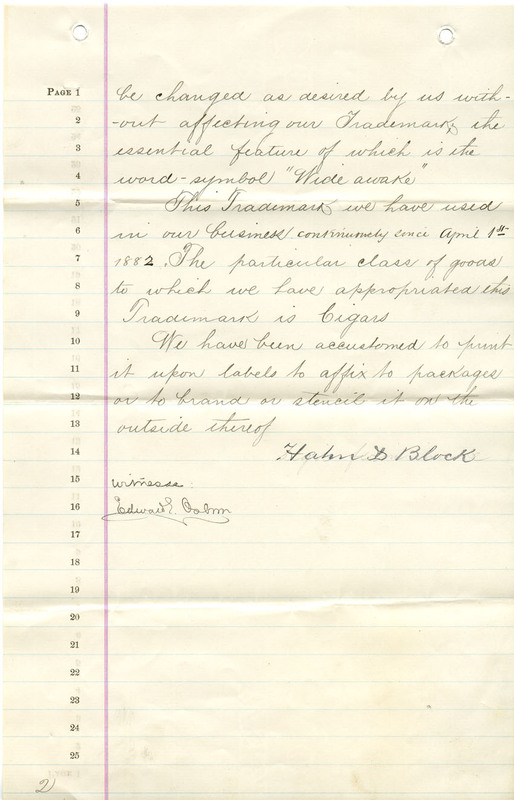 PAGE 1 be changed as desired by us with-
2 -out affecting our Trademark, the
3 essential feature of which is the
4 word-symbol "Wide awake"
5 This Trademark we have used
6 in our business continuously since April 1st
7 1882. The particular class of goods
8 to which we have appropriated this
9 Trademark is Cigars
10 We have been accustomed to print
11 it upon labels to affix to packages
12 or to brand or stencil it on the
13 outside thereof
14 Hahn & Block
15 witnesses:
16 Edward E.
17
18
19
20
21
22
23
24
25
2)